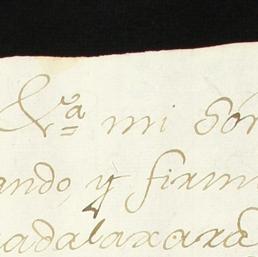 &ª mi Señor
ando, y firm
uadalaxara